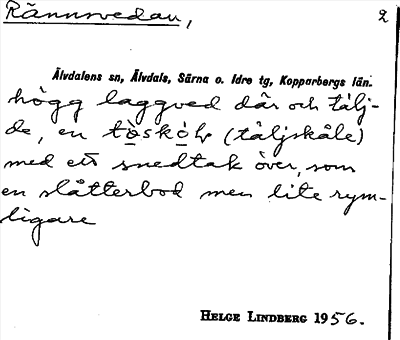 Rännsvedau, 2
Älvdalens sn, Älvdals, Särna o. Idre tg, Kopparbergs län.
högg laggved där och tälj-
de, en tòskòlv (täljskåle)
med ett snedtak över, som
en slåtterbod men lite rym-
ligare
HELGE LINDBERG 1956.